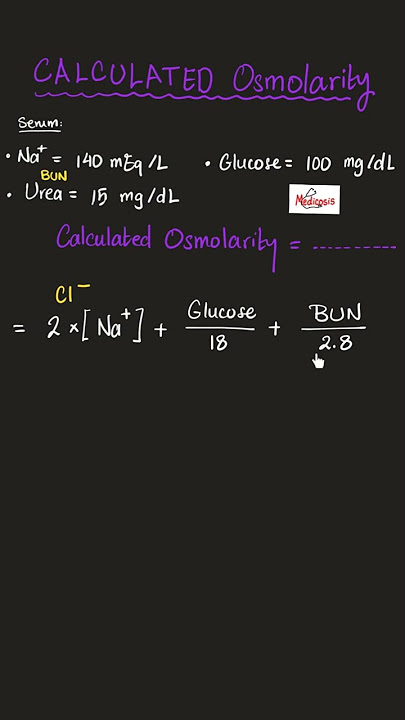 CALCULATED Osmolarity
Serum:
• Na⁺ = 140 mEq/L • Glucose = 100 mg/dL
BUN
• Urea = 15 mg/dL
Medicosis
Calculated Osmolarity = ----------
Cl⁻
= 2 × [Na⁺] + Glucose/18 + BUN/2.8